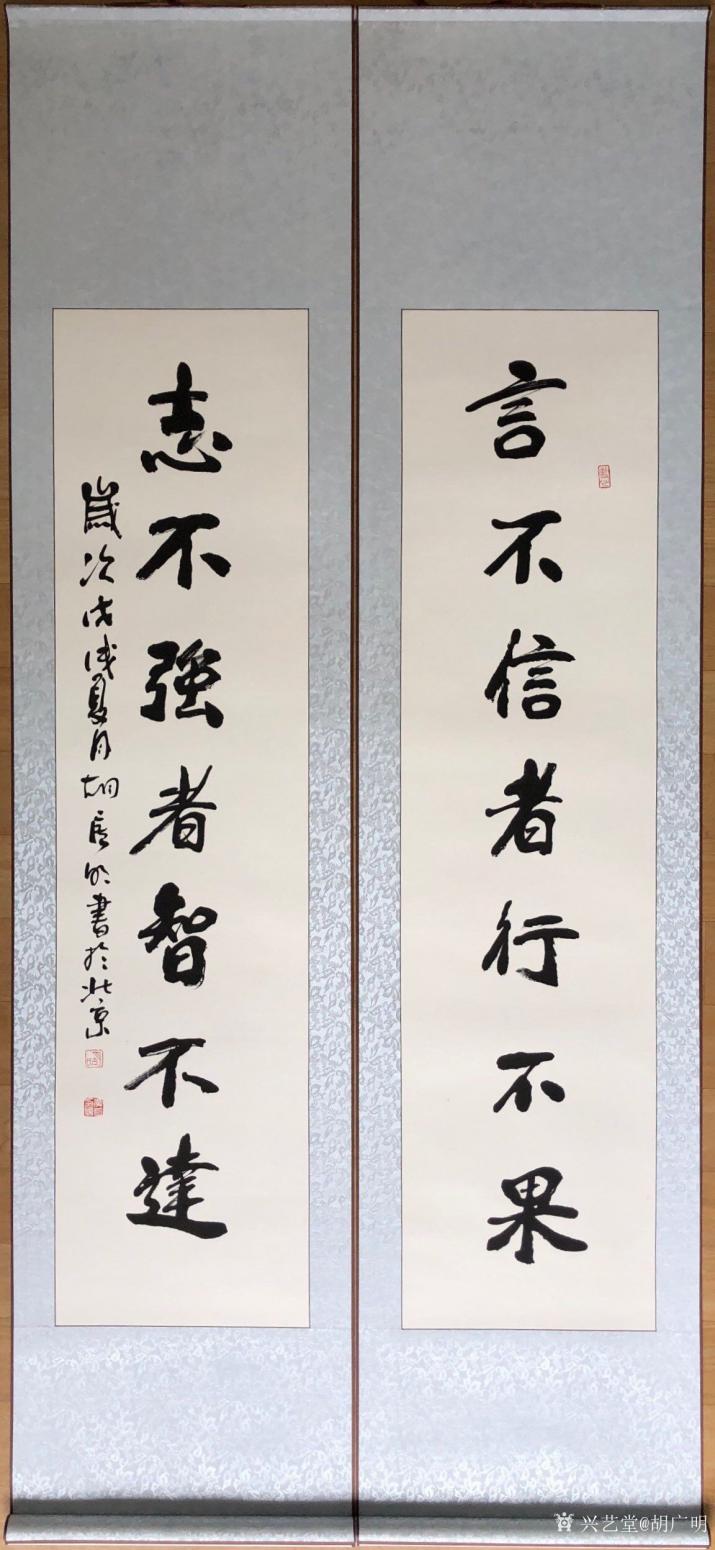 言不信者行不果
志不強者智不達
歲次戊戌夏月胡广明書於北京
兴艺堂@胡广明